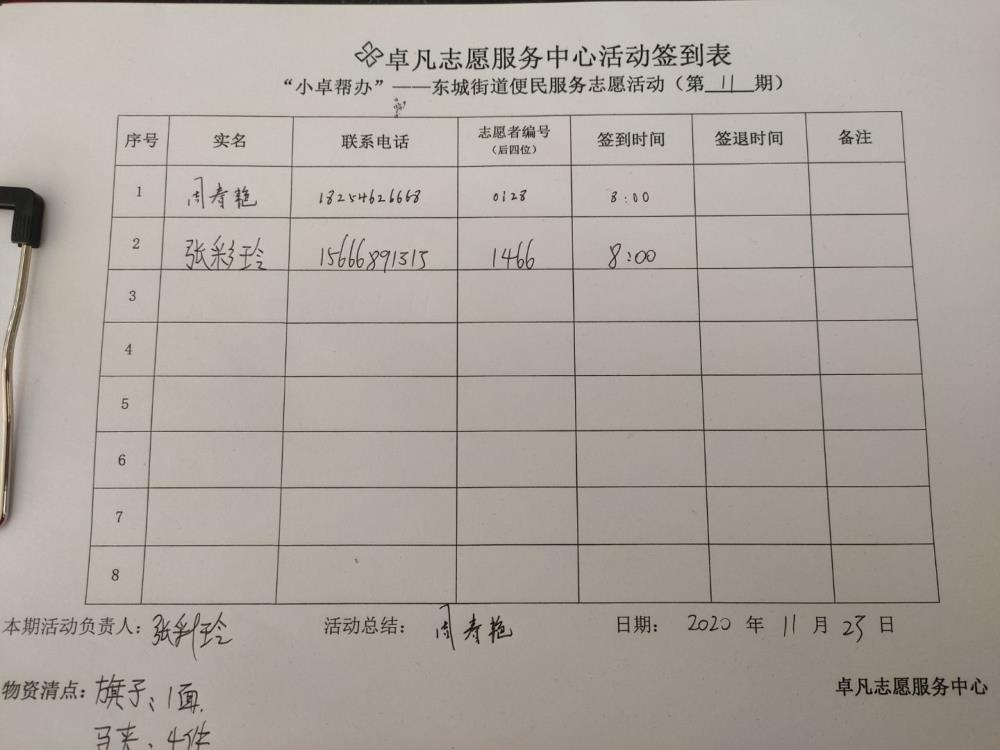 卓凡志愿服务中心活动签到表
“小卓帮办”——东城街道便民服务志愿活动（第 11 期）
序号 实名 联系电话 志愿者编号（后四位） 签到时间 签退时间 备注
1 周寿艳 18254626668 0128 8:00
2 张彩玲 15666891313 1466 8:00
3
4
5
6
7
8
本期活动负责人：张彩玲 活动总结：周寿艳 日期：2020 年 11 月 23 日
物资清点：旗子、1面. 卓凡志愿服务中心
马夹、4件